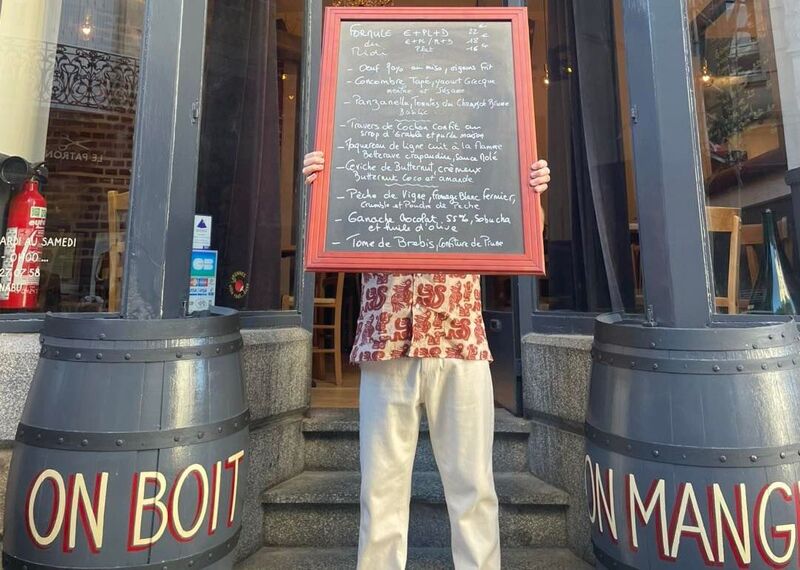 FORMULE E+PL+D 22 €
du E+PL / PL+D 18 €
Midi Plat 16 €
- Oeuf Mayo au miso, oignons frit
- Concombre Tapé, yaourt Grecque
menthe et Sésame
- Panzanella, Tomates du Champs de
Basilic
- Travers de Cochon Confit au
sirop d'Erable et purée maison
- Maquereau de ligne cuit à la flamme
Betterave crapaudine, sauce Molé
- Ceviche de Butternut, crémeux
Butternut Coco et amande
- Pêche de Vigne, fromage blanc fermier,
Crumble et Poudre de Pêche
- Ganache chocolat, 55%, Sobacha
et huile d'olive
- Tome de Brebis, Confiture de Prune
LE PATRON
RDI AU SAMEDI
- 0H00
27 07 58
NABU
CB
ON BOIT
ON MANG